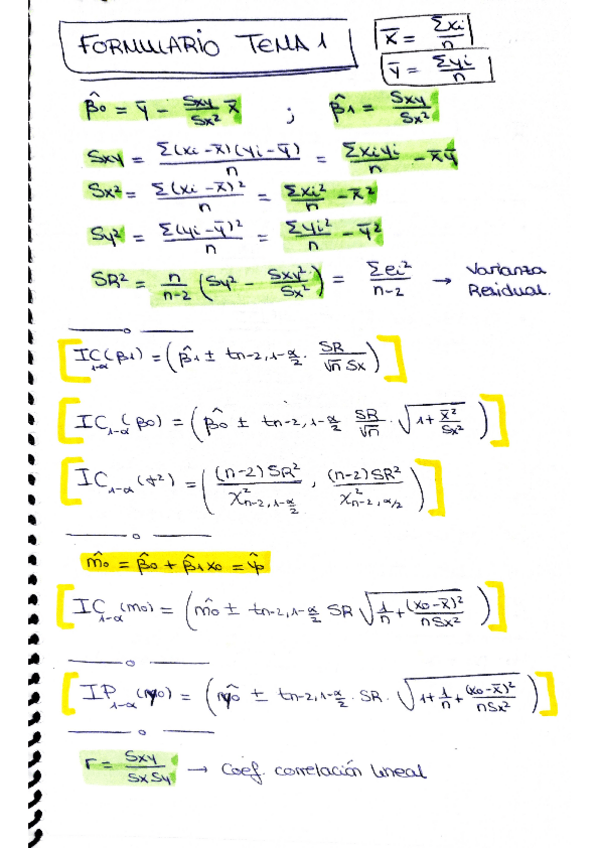 FORMULARIO TEMA 1
x̄ = Σxi/n
ȳ = Σyi/n
β̂0 = ȳ − Sxy/Sx² x̄ ; β̂1 = Sxy/Sx²
Sxy = Σ(xi − x̄)(yi − ȳ)/n = Σxiyi/n − x̄ȳ
Sx² = Σ(xi − x̄)²/n = Σxi²/n − x̄²
Sy² = Σ(yi − ȳ)²/n = Σyi²/n − ȳ²
SR² = n/(n−2) (Sy² − Sxy²/Sx²) = Σei²/(n−2) → Varianza
Residual.
[IC1−α(β1) = (β̂1 ± tn−2,1−α/2 · SR/(√n Sx))]
[IC1−α(β0) = (β̂0 ± tn−2,1−α/2 SR/√n · √(1 + x̄²/Sx²))]
[IC1−α(σ²) = ((n−2)SR²/χ²n−2,1−α/2 , (n−2)SR²/χ²n−2,α/2)]
m̂0 = β̂0 + β̂1x0 = ŷ
[IC1−α(m0) = (m̂0 ± tn−2,1−α/2 SR √(1/n + (x0−x̄)²/nSx²))]
[IP1−α(y0) = (ŷ0 ± tn−2,1−α/2 · SR · √(1 + 1/n + (x0−x̄)²/nSx²))]
r = Sxy/SxSy → Coef. correlación lineal